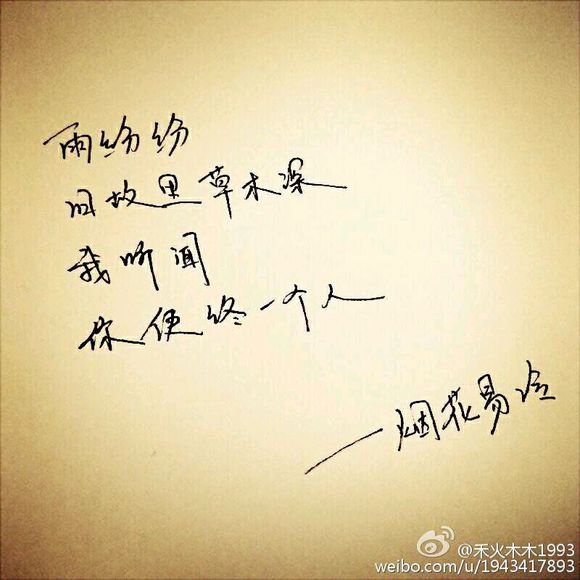 雨纷纷
旧故里草木深
我听闻
你便终一个人
—烟花易冷
@禾火木木1993
weibo.com/u/1943417893